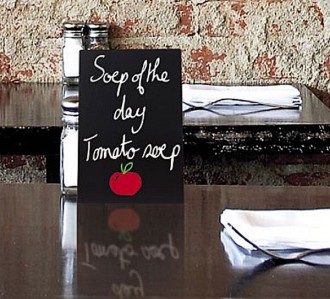 Soep of the
day
Tomato soep